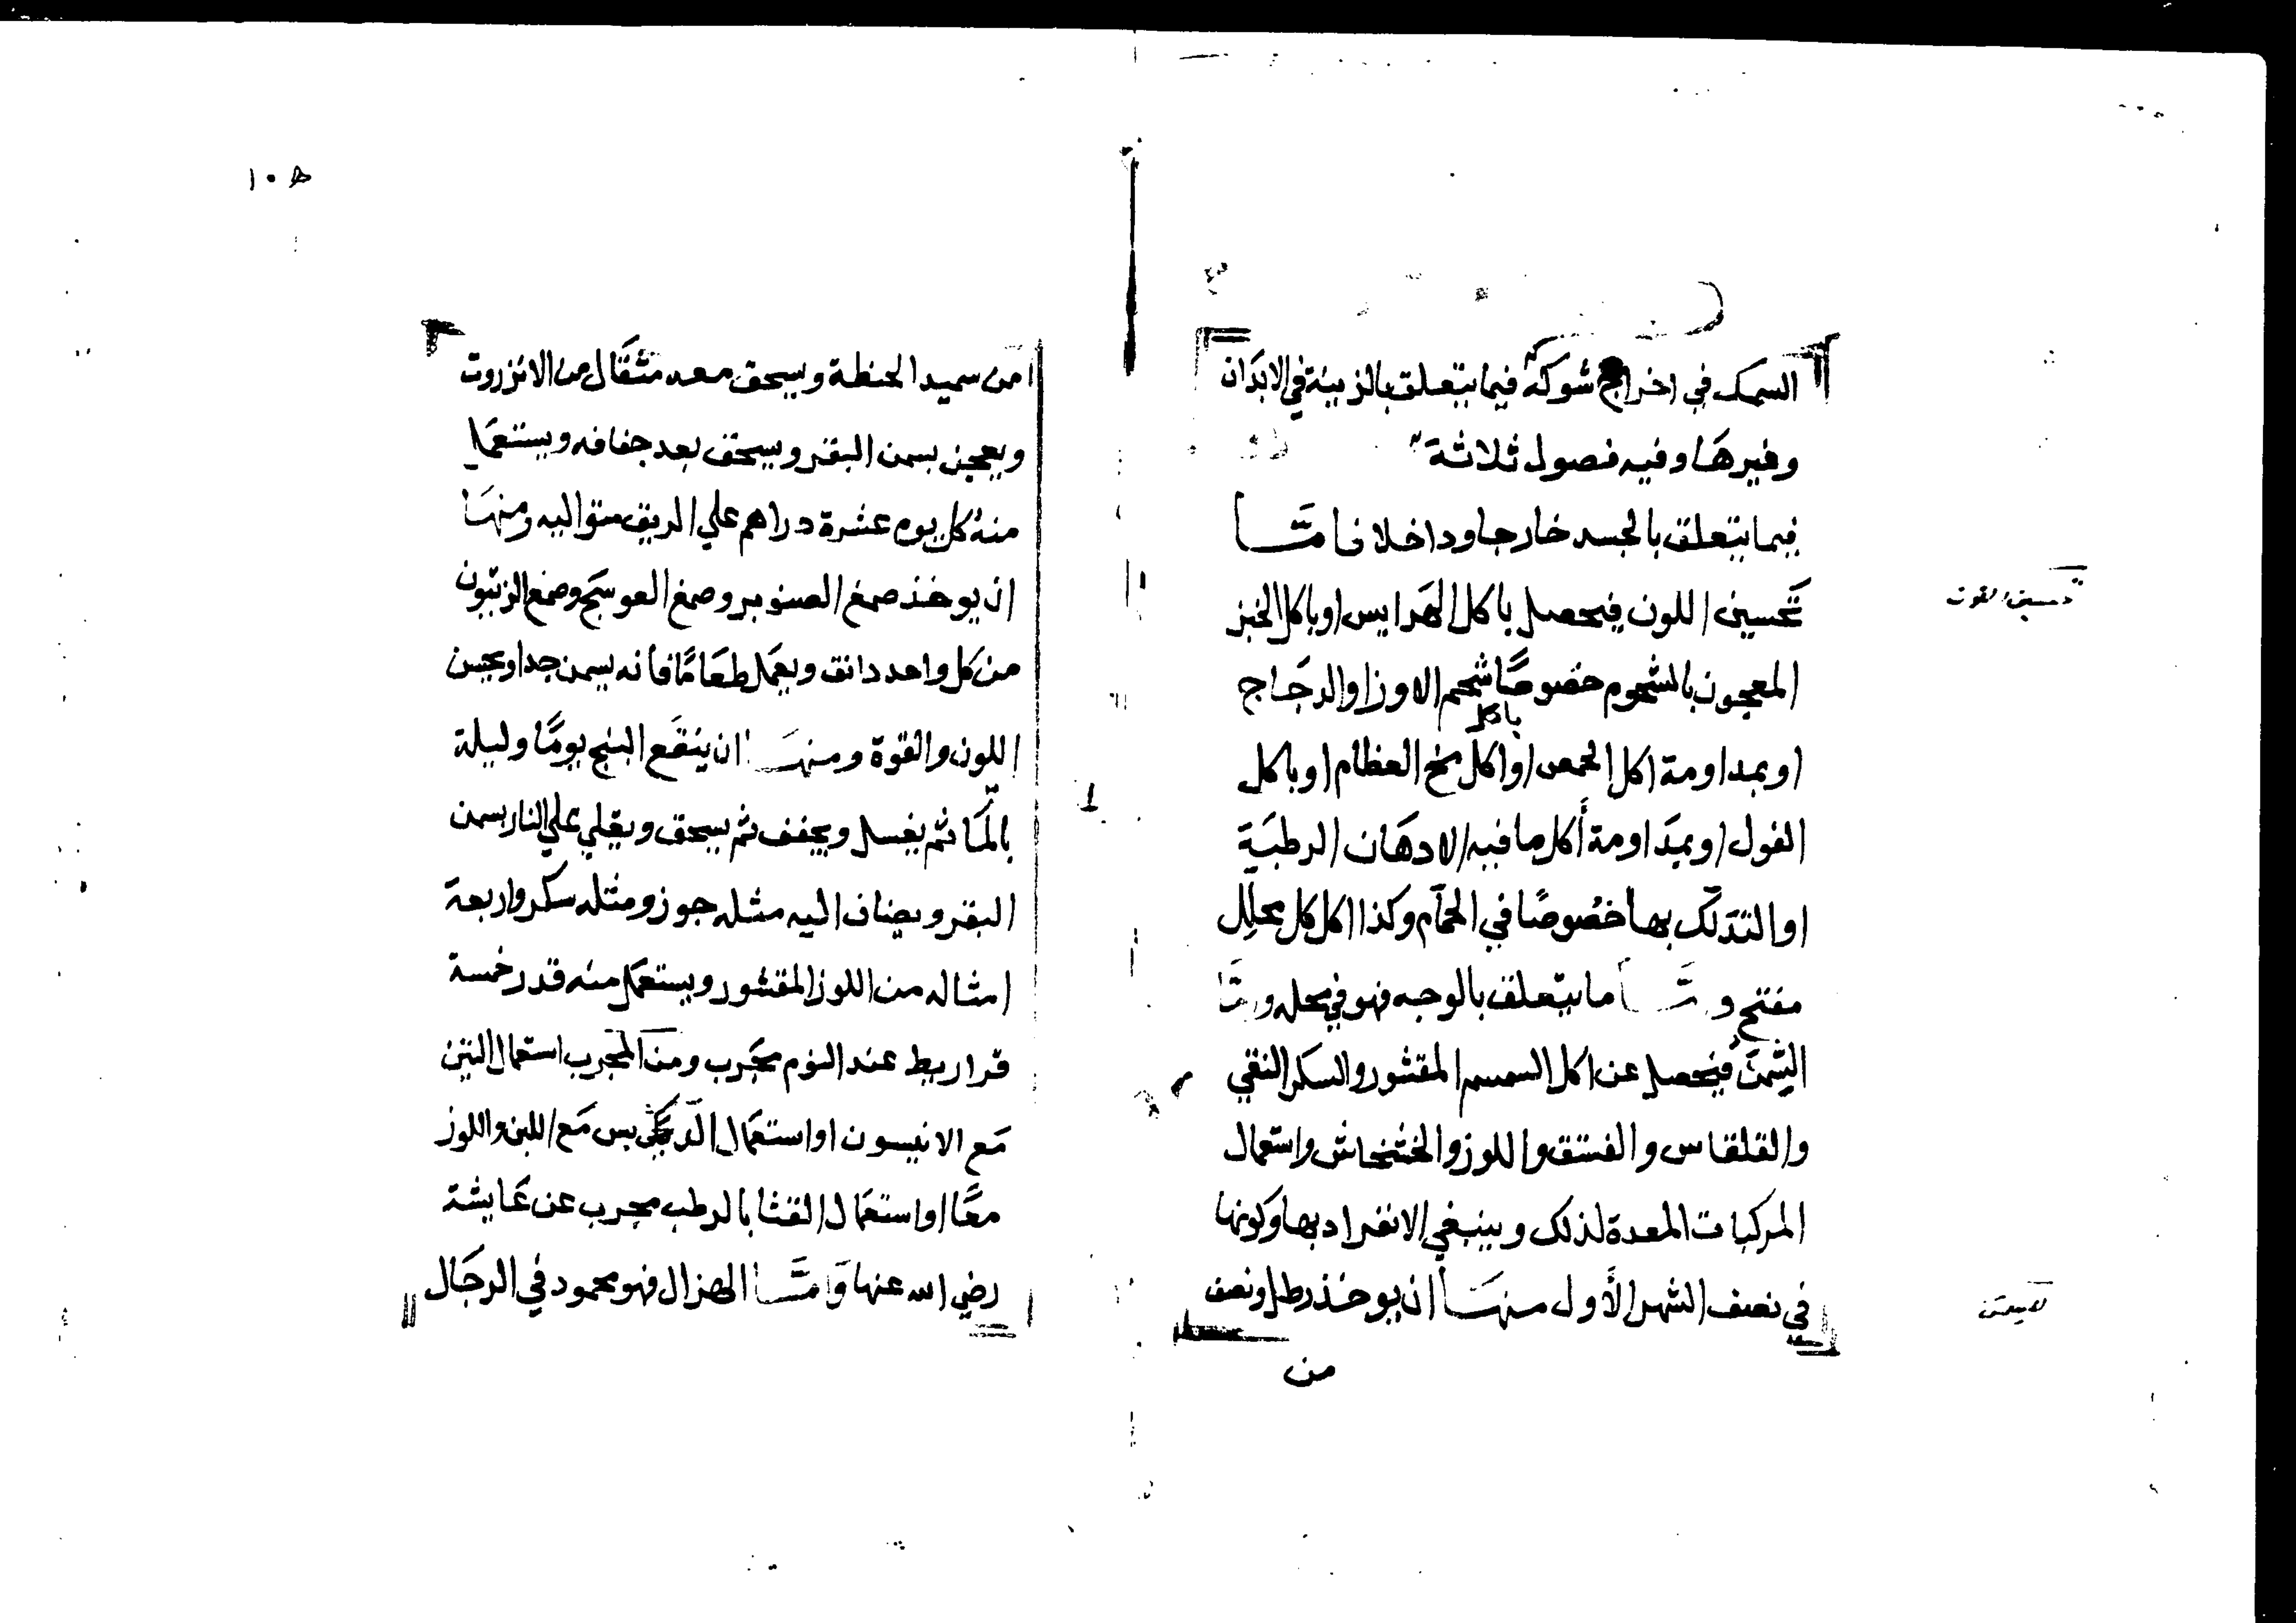 السمك في اخراج شوكه فيما يتعلق بالزينة في الابدَان
وغيرهَا وفيه فصول ثلاثة
فيما يتعلق بالجسد خارجا وداخلا فامَّا
تحسين اللون فيحصل باكل الهَرايس اوباكل الخبز
المعجون بالشحوم خصوصًا شحم الاوز والدجَاج
اوبمداومة اكل الحمص او اكل مخ العظام اوباكل
باكل
الفول اوبمدَاومة أكل ما فيه الادهَان الرطبَة
اوالتدَلّك بها خصُوصًا في الحمّام وكذا اكل كل محلِل
مفتح و مَّا ما يتعلق بالوجه فهو في محله و مَّا
السِّمَنُ فيحصل عن اكل السمسم المقشور والسكر النقي
والقلقاس والفستق واللوز والخشخاش واستعمال
المركبات المعدة لذلك وينبغي الانفراد بها وكونها
في نصف الشهر الأول منهَا ان يوخذ رطل ونصف
من
تحسين القوت
١٠٥
من سميد الحنطة ويسحق معه مثقَال من الانزروت
ويعجن بسمن البقر ويسحق بعد جفافه ويستعمَل
منهُ كل يوم عشرة دراهم علي الريق متواليه ومنهَا
ان يوخذ صمغ الصنوبر وصمغ العوسَج وصمغ الزيتون
من كل واحد دانق ويعمَل طعَامًا فانه يسمن جدا ويحسن
اللون والقوة ومنهَا ان ينقَع البنج يومًا وليلة
بالمَا ثم يغسل ويجفف ثم يسحق ويقلي علي النار بسمن
البقر ويضاف اليه مثله جوز ومثله سكر واربعة
امثاله من اللوز المقشور ويستعمَل منه قدر خمسة
قراريط عند النوم مجَرب ومن المجرب استعمال التين
مَع الانيسون او استعمَال الدبيس مَع اللبن واللوز
معًا او استعمَال القثا بالرطب مجرب عن عَايشة
رضي الله عنها وَامَّا الهزال فهو محمود في الرجَال